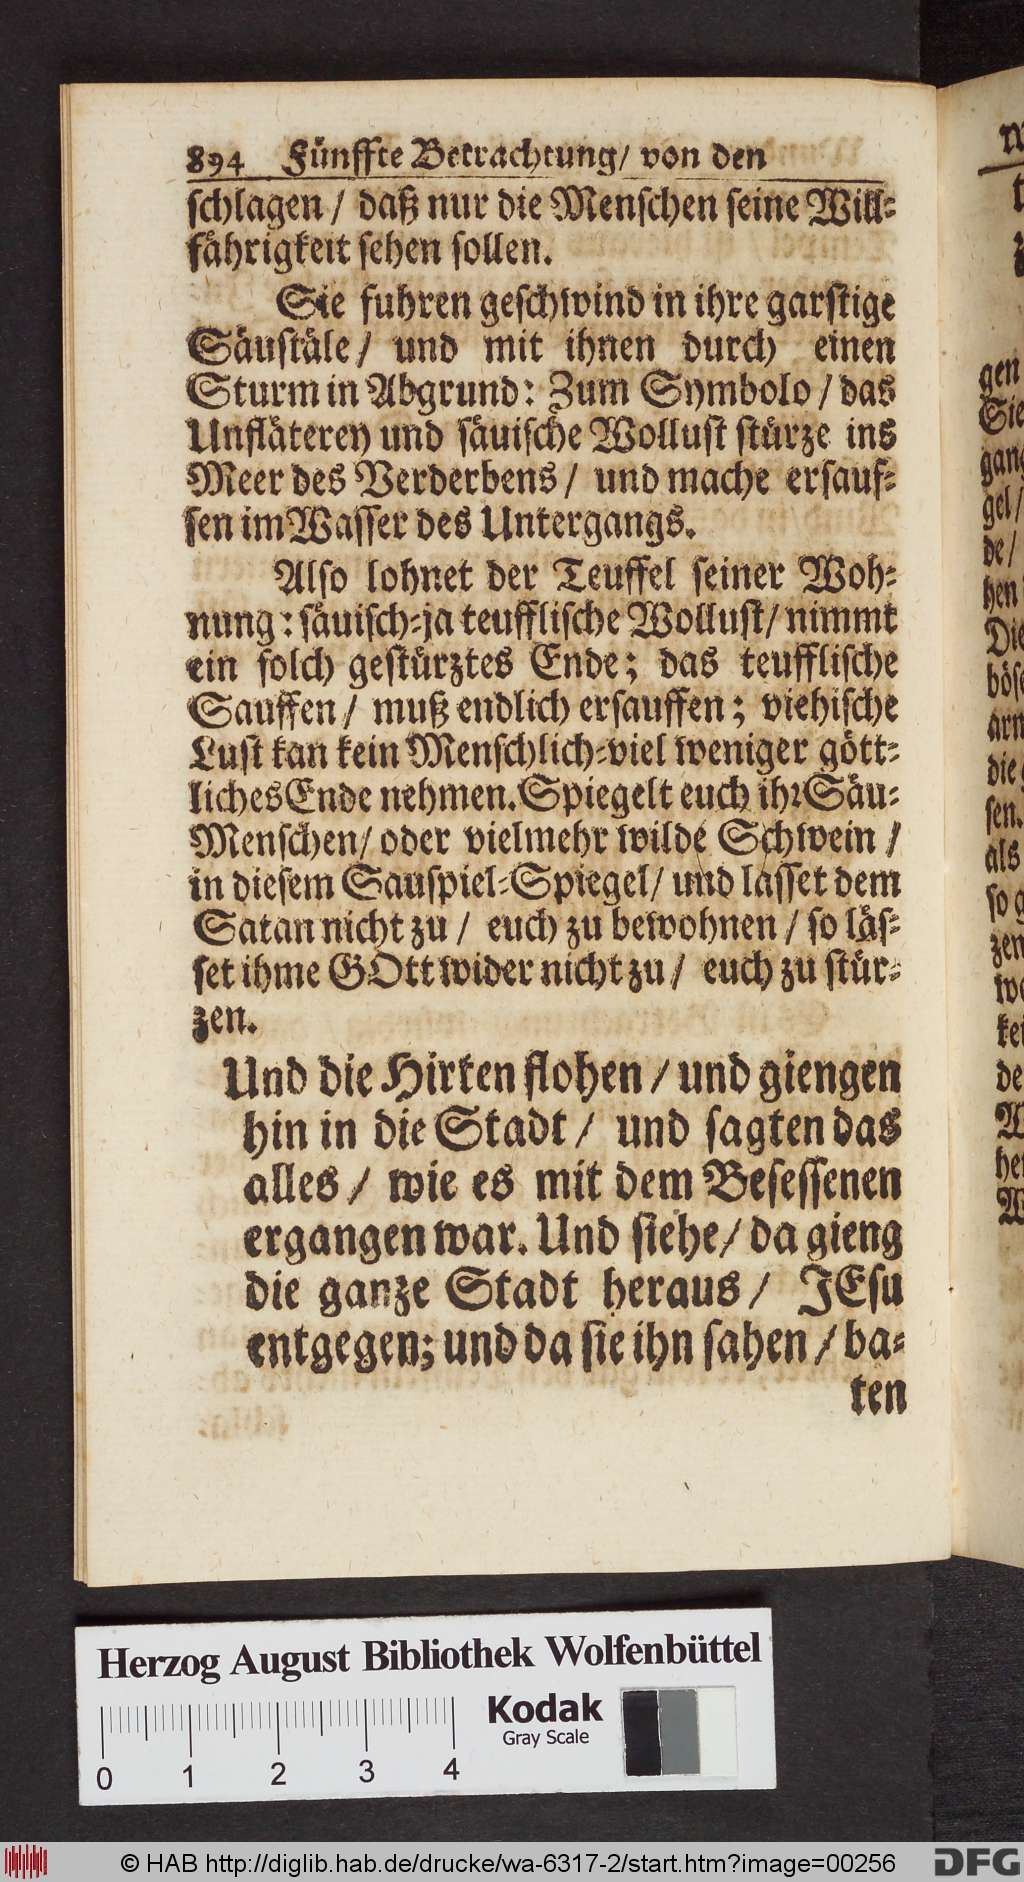 894 Fünffte Betrachtung/ von den
schlagen/ daß nur die Menschen seine Will⸗
fährigkeit sehen sollen.
Sie fuhren geschwind in ihre garstige
Säuställe/ und mit ihnen durch einen
Sturm in Abgrund: Zum Symbolo/ das
Unfläterey und säuische Wollust stürze ins
Meer des Verderbens/ und mache ersauf⸗
sen im Wasser des Untergangs.
Also lohnet der Teuffel seiner Woh⸗
nung: säuisch⸗ja teufflische Wollust/ nimmt
ein solch gestürztes Ende; das teufflische
Sauffen/ muß endlich ersauffen; viehische
Lust kan kein Menschlich⸗viel weniger gött⸗
liches Ende nehmen. Spiegelt euch ihr Säu⸗
Menschen/ oder vielmehr wilde Schwein/
in diesem Sauspiel⸗Spiegel/ und lasset dem
Satan nicht zu/ euch zu bewohnen/ so läs⸗
set ihme GOtt wider nicht zu/ euch zu stür⸗
zen.
Und die Hirten flohen/ und giengen
hin in die Stadt/ und sagten das
alles/ wie es mit dem Besessenen
ergangen war. Und siehe/ da gieng
die ganze Stadt heraus/ JEsu
entgegen; und da sie ihn sahen/ ba⸗
ten
gen
Sie
gang
gel/
de/
hen
Die
böse
arn
die
sen.
als
so g
zen
we
kei
de
Herzog August Bibliothek Wolfenbüttel
Kodak
Gray Scale
0 1 2 3 4
© HAB http://diglib.hab.de/drucke/wa-6317-2/start.htm?image=00256
DFG